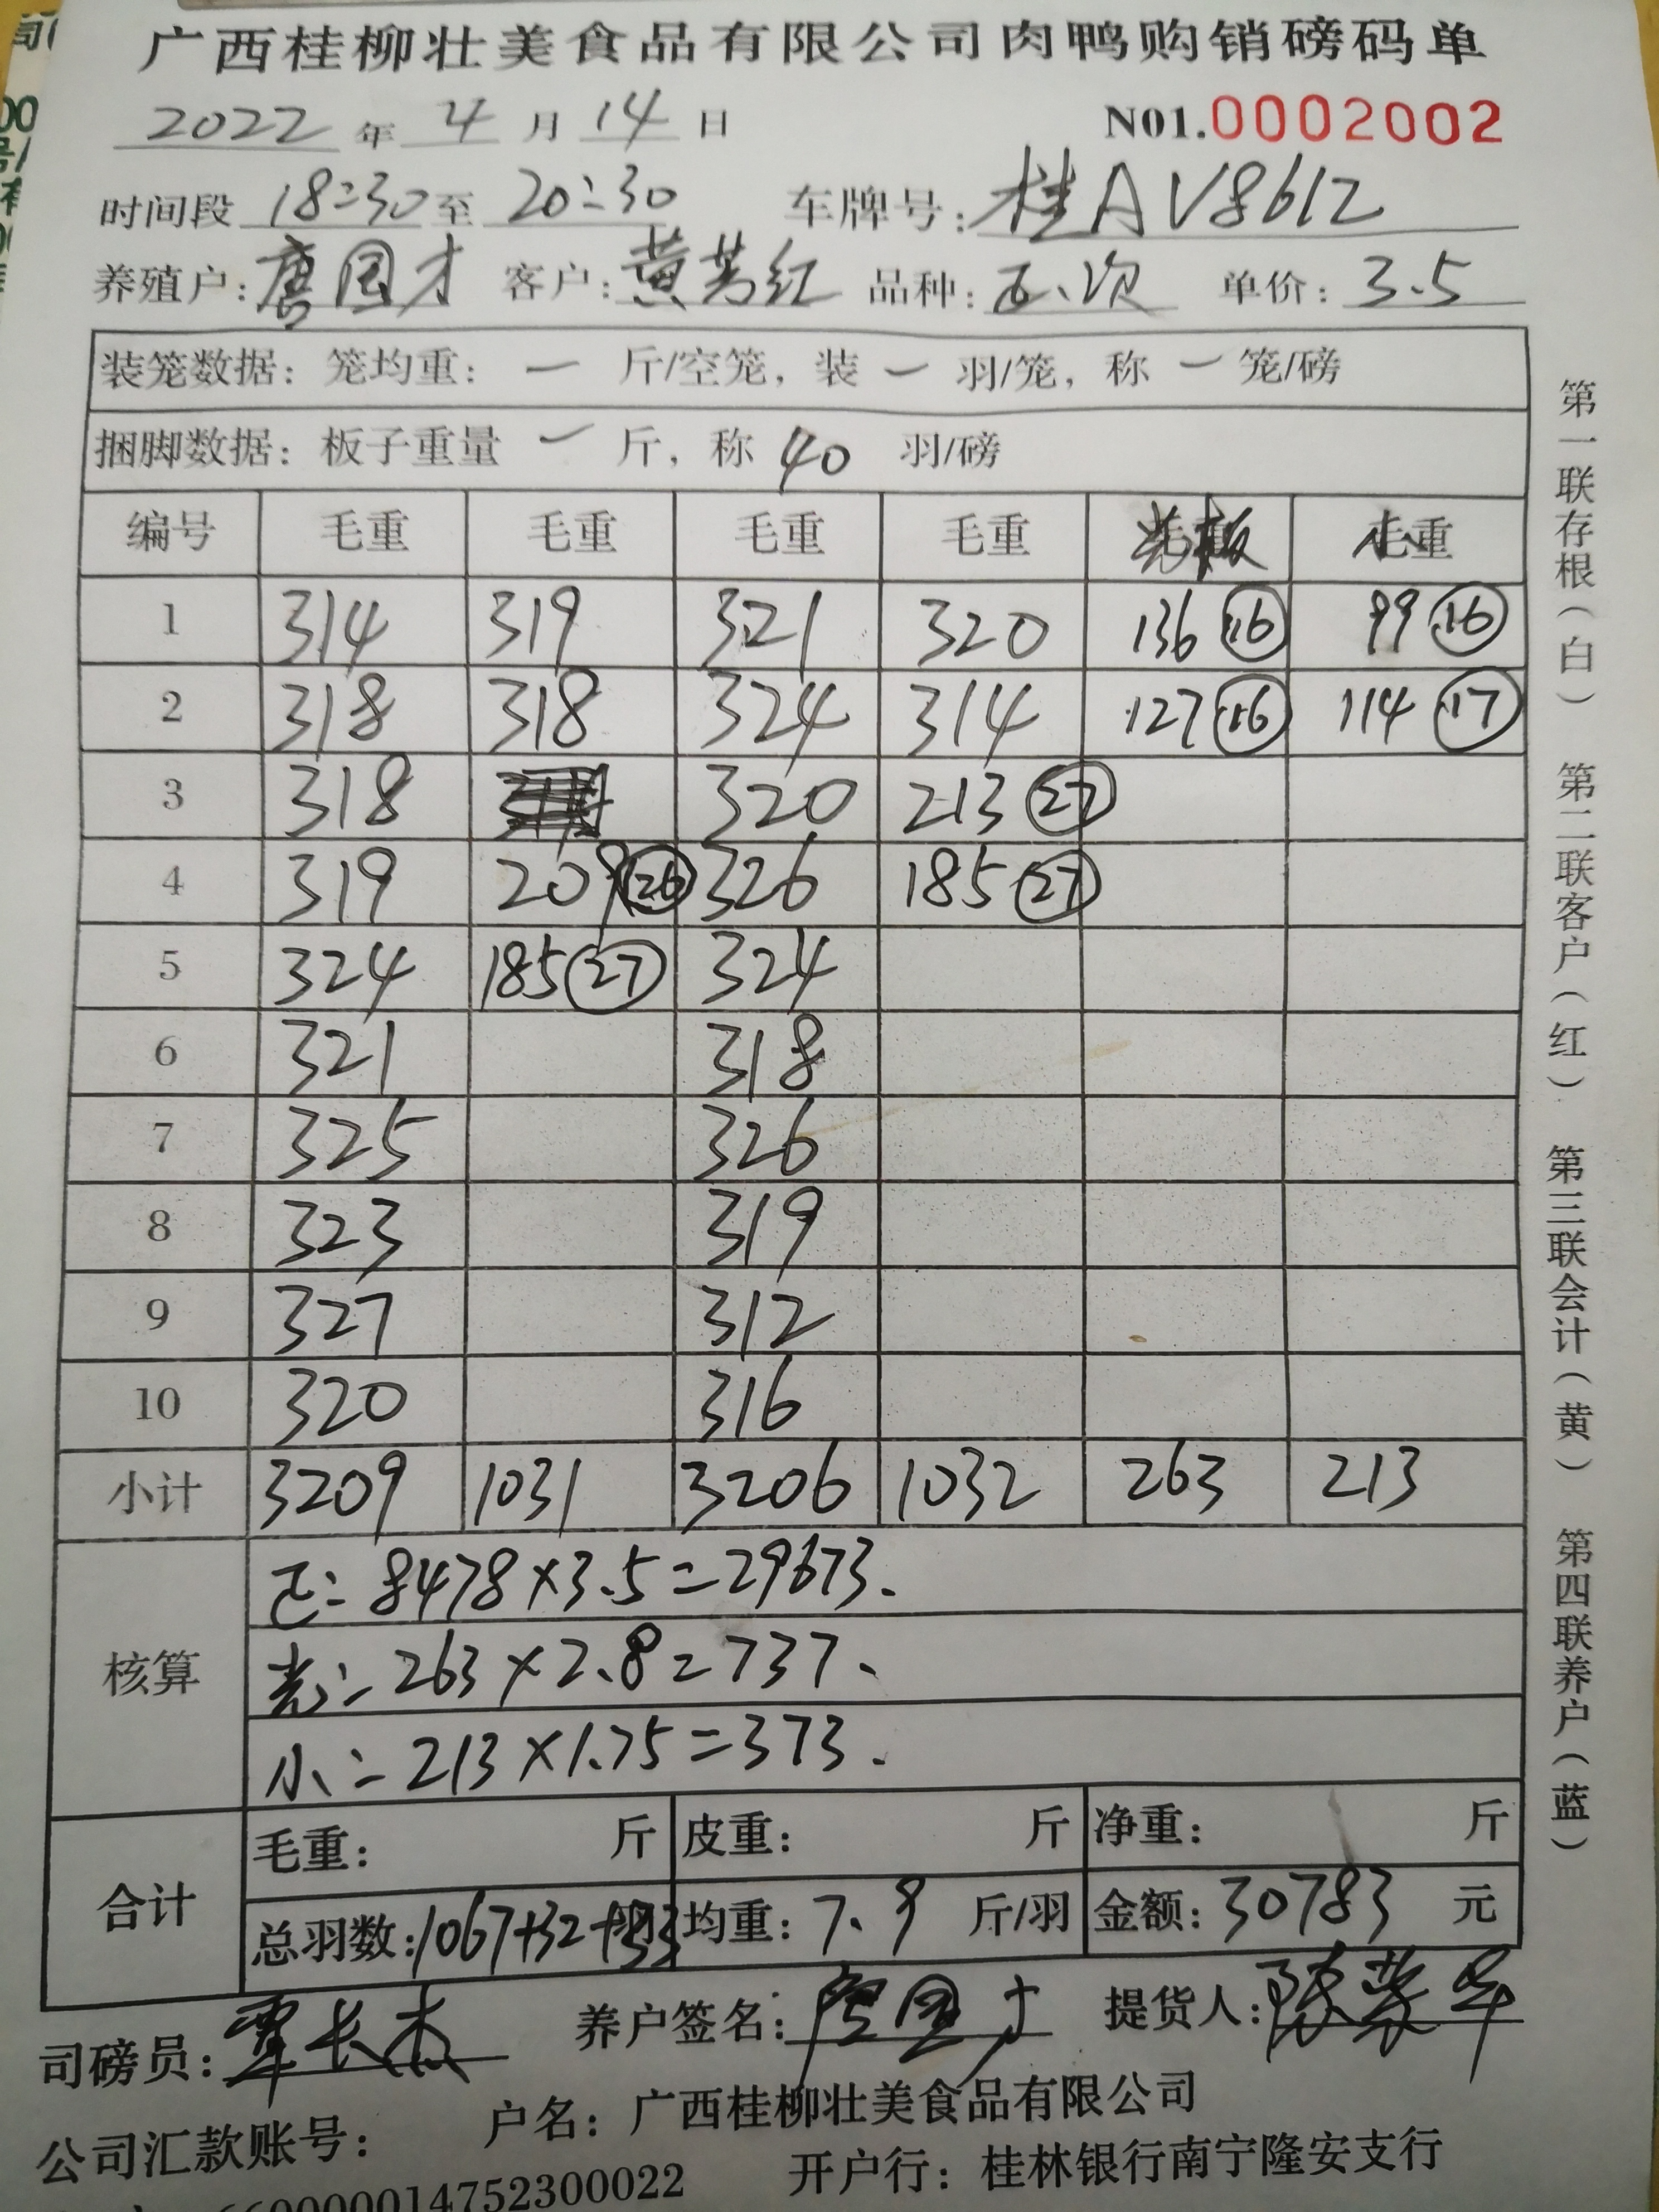 广西桂柳壮美食品有限公司肉鸭购销磅码单
2022 年 4 月 14 日 N01.0002002
时间段 18:30 至 20:30 车牌号: 桂AV8612
养殖户: 唐国才 客户: 黄芳红 品种: 瓦次 单价: 3.5
装笼数据: 笼均重: 一 斤/空笼, 装 一 羽/笼, 称 一 笼/磅
捆脚数据: 板子重量 一 斤, 称 40 羽/磅
编号 毛重 毛重 毛重 毛重 光板 小毛重
1 314 319 321 320 136 16 99 16
2 318 318 324 314 127 16 114 17
3 318 320 213 27
4 319 209 26 326 185 27
5 324 185 27 324
6 321 318
7 325 326
8 323 319
9 327 312
10 320 316
小计 3209 1031 3206 1032 263 213
核算
正: 8478×3.5=29673.
光: 263×2.8=737.
小: 213×1.75=373.
合计
毛重: 斤 皮重: 斤 净重: 斤
总羽数: 1067+32+33 均重: 7.9 斤/羽 金额: 30783 元
司磅员: 覃长杰 养户签名: 唐国才 提货人:
公司汇款账号: 户名: 广西桂柳壮美食品有限公司
660000014752300022 开户行: 桂林银行南宁隆安支行
第一联存根(白) 第二联客户(红) 第三联会计(黄) 第四联养户(蓝)